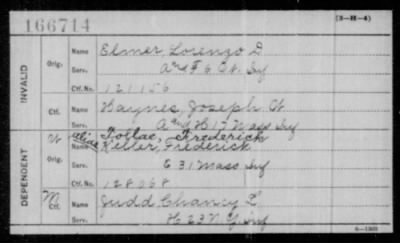 166714
(3-H-4)
INVALID
Orig.
Name Elmer, Lorenzo D.
Serv. F 6 Ct. Inf
Ctf. No. 121156
Ctf.
Name Haynes, Joseph
Serv. H 17 Mass Inf
DEPENDENT
W
Orig.
alias
Name Frederick
Keller, Frederick
Serv. C 31 Mass Inf
Ctf. No. 128068
Ctf.
Name Judd, Chancy L
Serv. H 23 N Y Inf